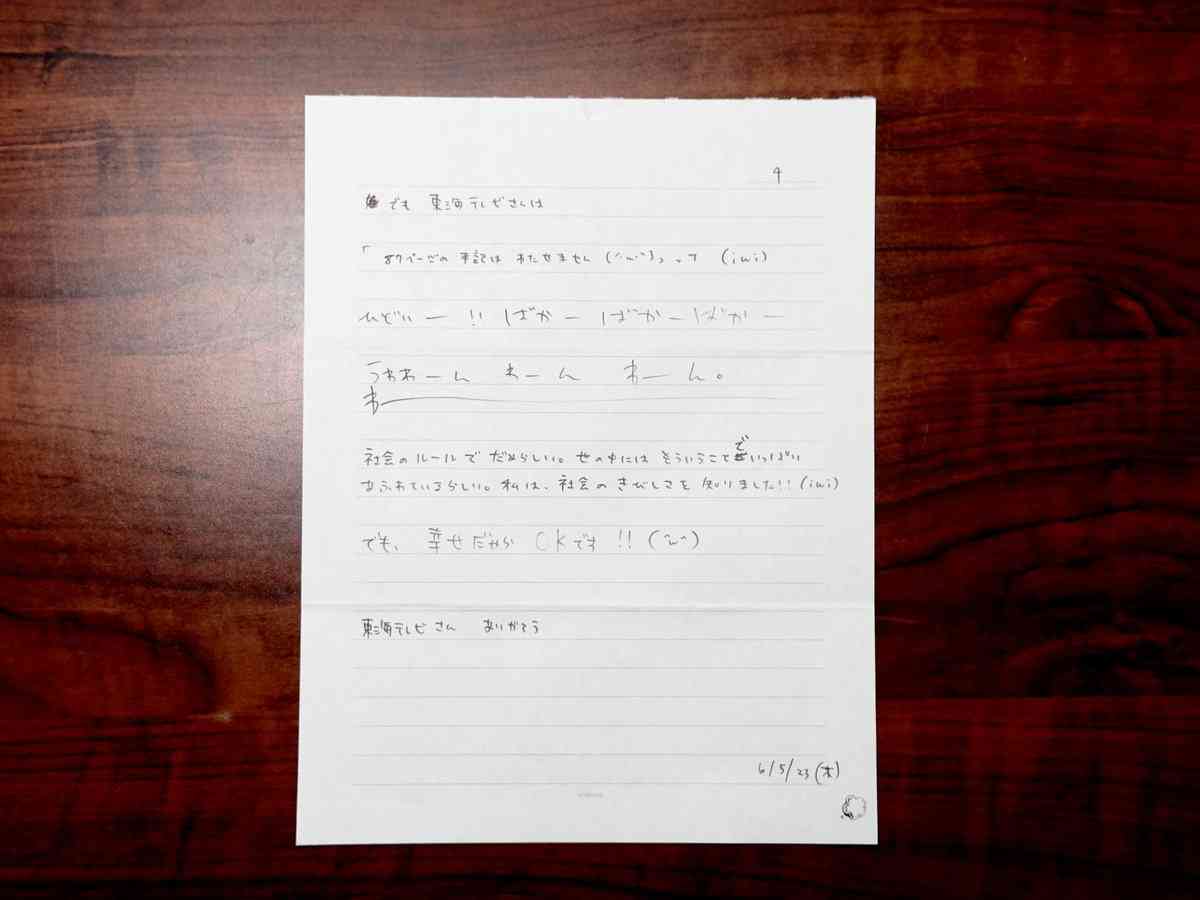 4
でも 東海テレビさんは
「87ページの 手記は わたせません (^ω^)」って (;ω;)
ひどいー!! ばかー ばかー ばかー
うわわーん わーん わーん。
わー
社会のルールで だめらしい。世の中には そういうことで いっぱい
あふれているらしい。私は、社会の きびしさを 知りました!! (;ω;)
でも、 幸せだから OKです !! (^ω^)
東海テレビさん ありがとう
6/5/23(木)